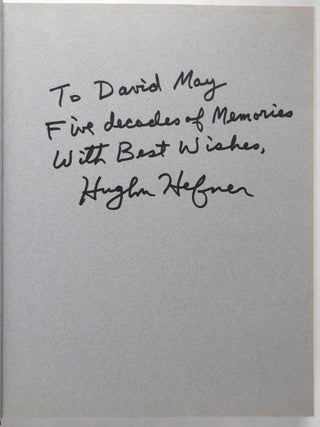 To David May
Five decades of Memories
With Best Wishes,
Hugh M Hefner